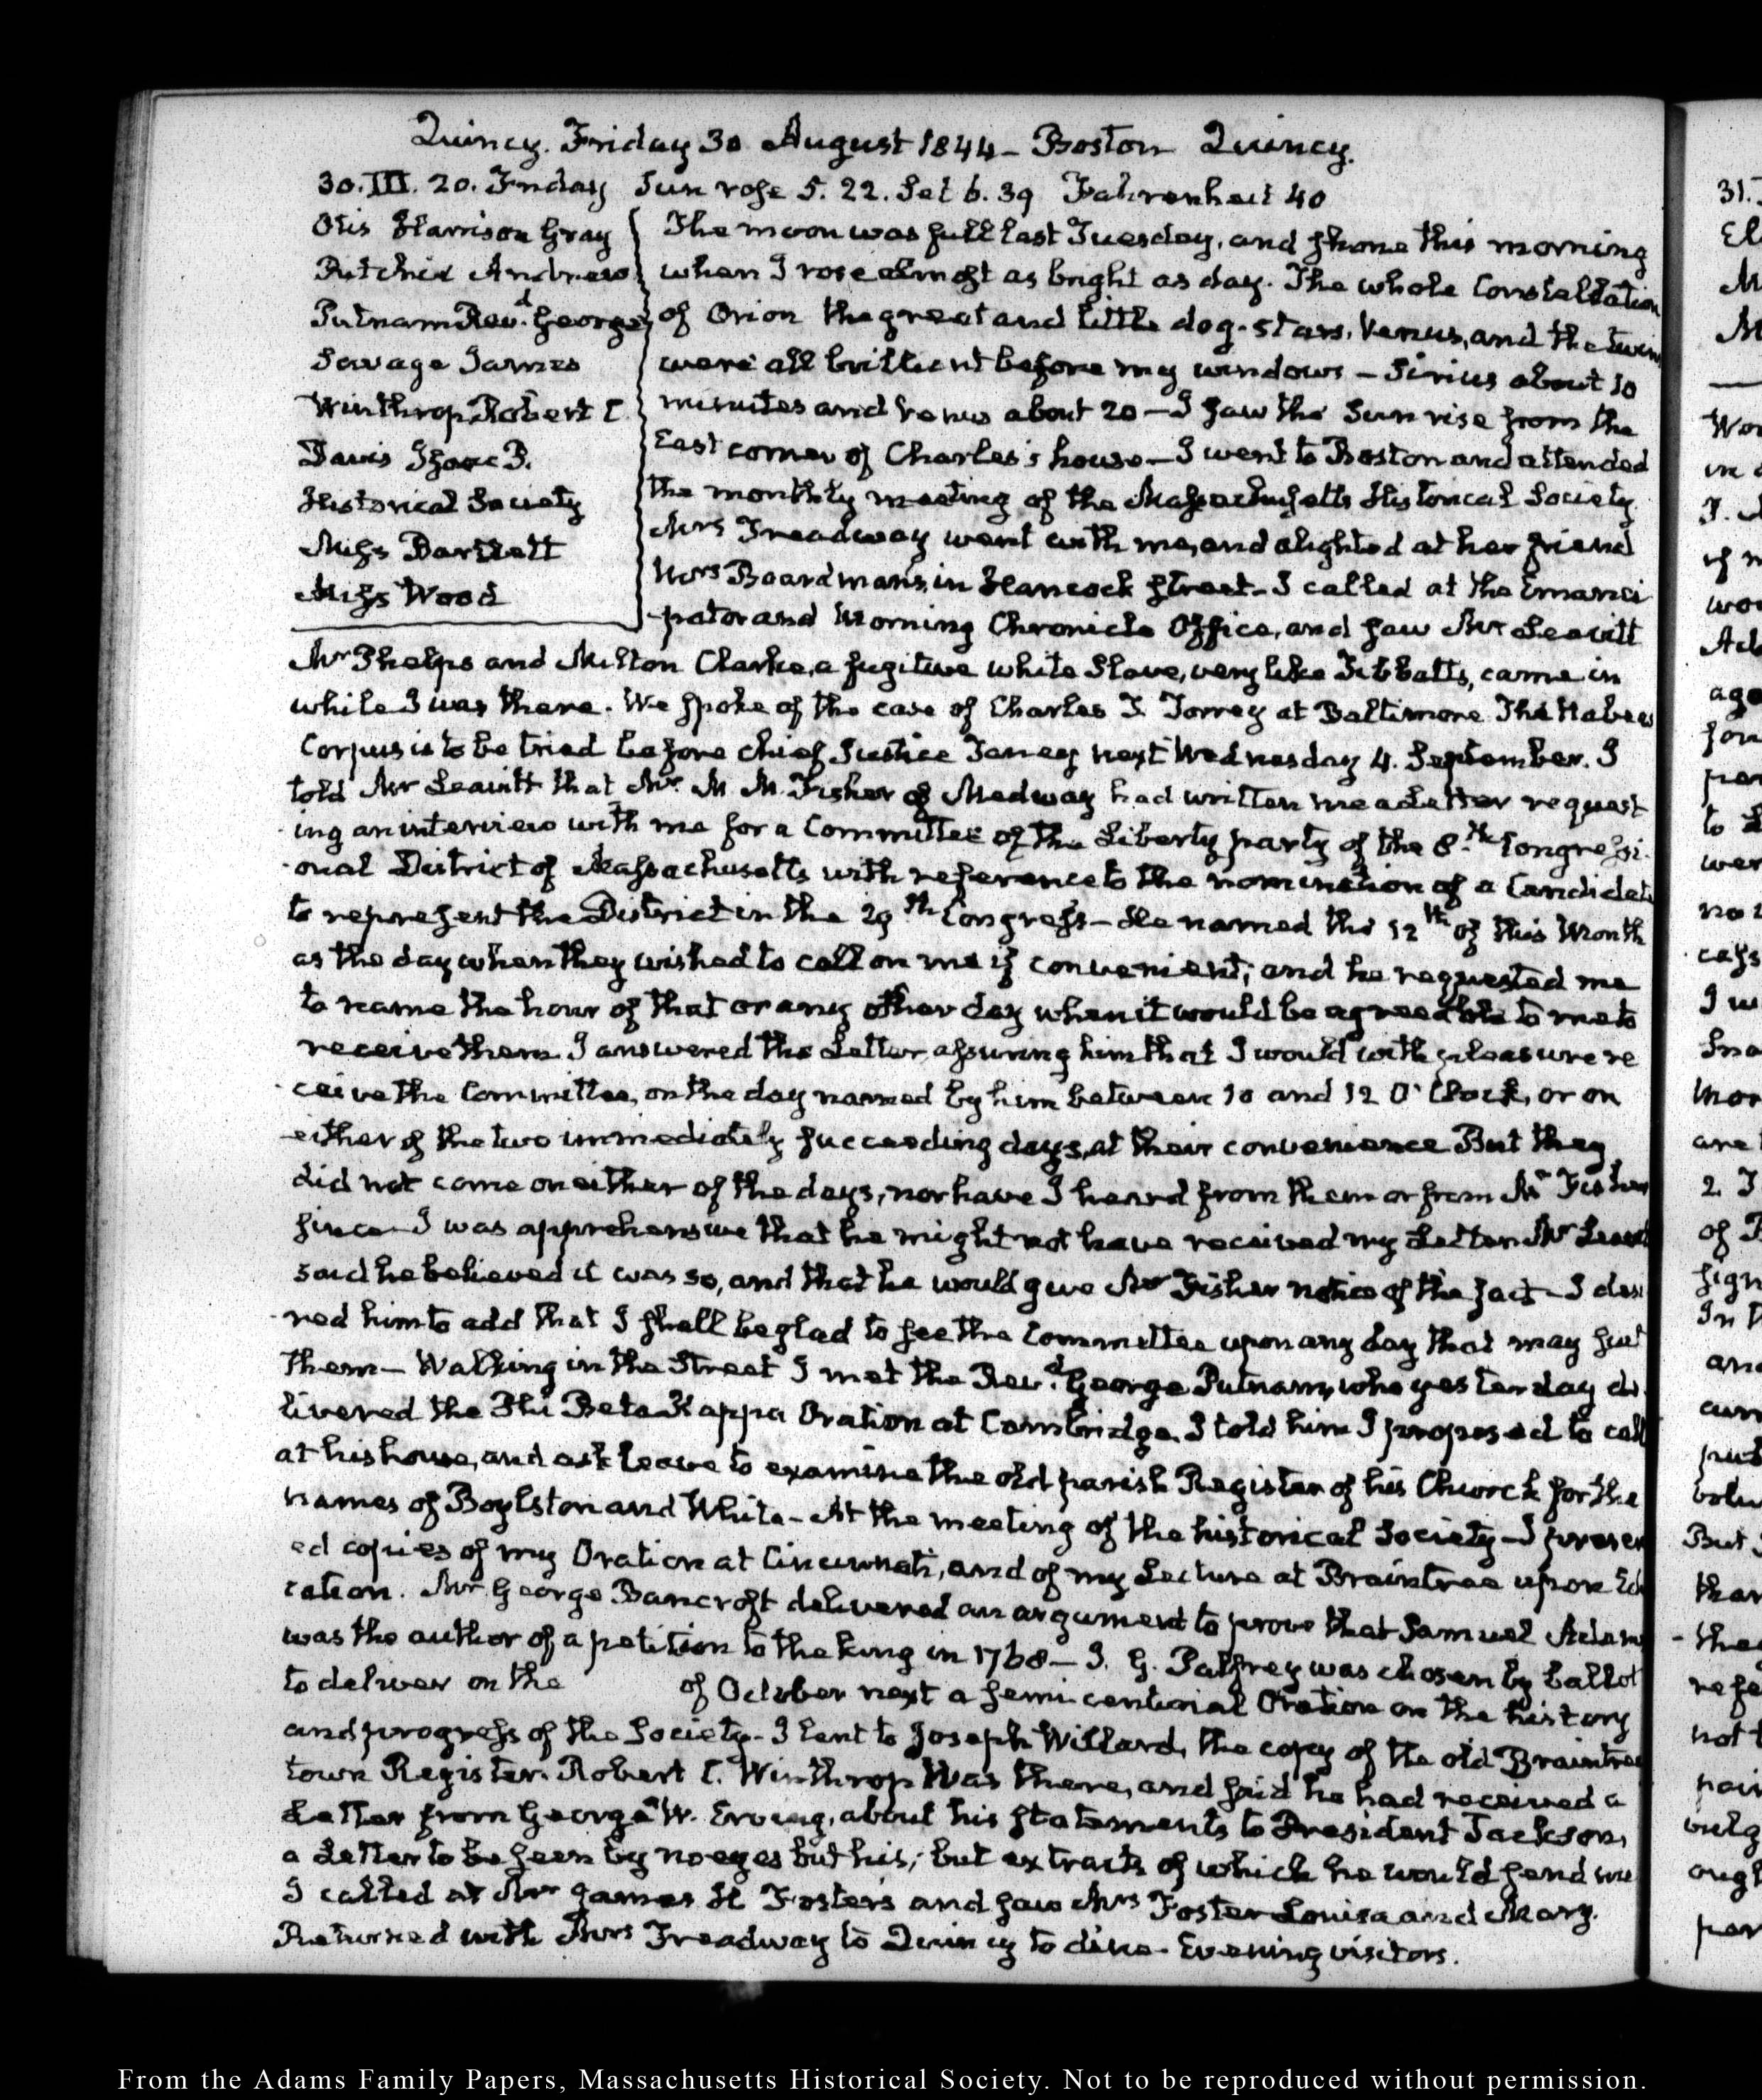 Quincy. Friday 30 August 1844 – Boston Quincy.
30. III. 20. Friday Sun rose 5. 22. Set 6. 39 Fahrenheit 40
Otis Harrison Gray
Ritchie Andrew
Putnam Revd. George
Savage James
Winthrop Robert C
Davis Isaac P.
Historical Society
Miss Bartlett
Miss Wood
The moon was full last Tuesday, and shone this morning
when I rose almost as bright as day. The whole Constellation
of Orion the great and little dog-stars, Venus, and the twins
were all brilliant before my windows – Sirius about 10
minutes and Venus about 20 – I saw the Sun rise from the
East corner of Charles's house – I went to Boston and attended
the monthly meeting of the Massachusetts Historical Society
Mrs Treadway went with me, and alighted at her friend
Mrs Boardman's, in Hancock street – I called at the Emanci
-pator and Morning Chronicle Office, and saw Mr Leavitt
Mr Phelps and Milton Clarke, a fugitive white Slave, very like Tibbatts, came in
while I was there. We spoke of the case of Charles T. Torrey at Baltimore. The Habeas
Corpus is to be tried before Chief Justice Taney next Wednesday 4. September. I
told Mr Leavitt that Mr. M. M. Fisher of Medway had written me a Letter request
ing an interview with me for a Committee of the Liberty party of the 8th. Congressi-
-onal District of Massachusetts with reference to the nomination of a Candidate
to represent the District in the 29th Congress – He named the 12th of this Month
as the day when they wished to call on me if convenient; and he requested me
to name the hour of that or any other day when it would be agreeable to me to
receive them. I answered the Letter, assuring him that I would with pleasure re
ceive the Committee, on the day named by him between 10 and 12 O'Clock, or on
either of the two immediately succeeding days, at their convenience But they
did not come on either of the days, nor have I heard from them or from Mr Fisher
since – I was apprehensive that he might not have received my Letter. Mr Leavitt
said he believed it was so, and that he would give Mr Fisher notice of the fact – I desi
red him to add that I shall be glad to see the Committee upon any day that may suit
them – Walking in the Street I met the Revd. George Putnam, who yesterday de
livered the Phi Beta Kappa Oration at Cambridge. I told him I proposed to call
at his house, and ask leave to examine the old parish Register of his Church for the
names of Boylston and White – At the meeting of the historical Society – I present
ed copies of my Oration at Cincinnati, and of my Lecture at Braintree upon Edu
cation. Mr. George Bancroft delivered an argument to prove that Samuel Adams
was the author of a petition to the king in 1768 – J. G. Palfrey was chosen by ballot
to deliver on the of October next a semi-centurial Oration on the history
and progress of the Society – I lent to Joseph Willard, the copy of the old Braintree
town Register. Robert C. Winthrop was there, and said he had received a
Letter from George W. Erving, about his statements to President Jackson,
a Letter to be seen by no eyes but his; but extracts of which he would send me
I called at Mr James H Foster's and saw Mrs Foster Louisa and Mary.
Returned with Mrs Treadway to Quincy to dine – Evening visitors.
From the Adams Family Papers, Massachusetts Historical Society. Not to be reproduced without permission.